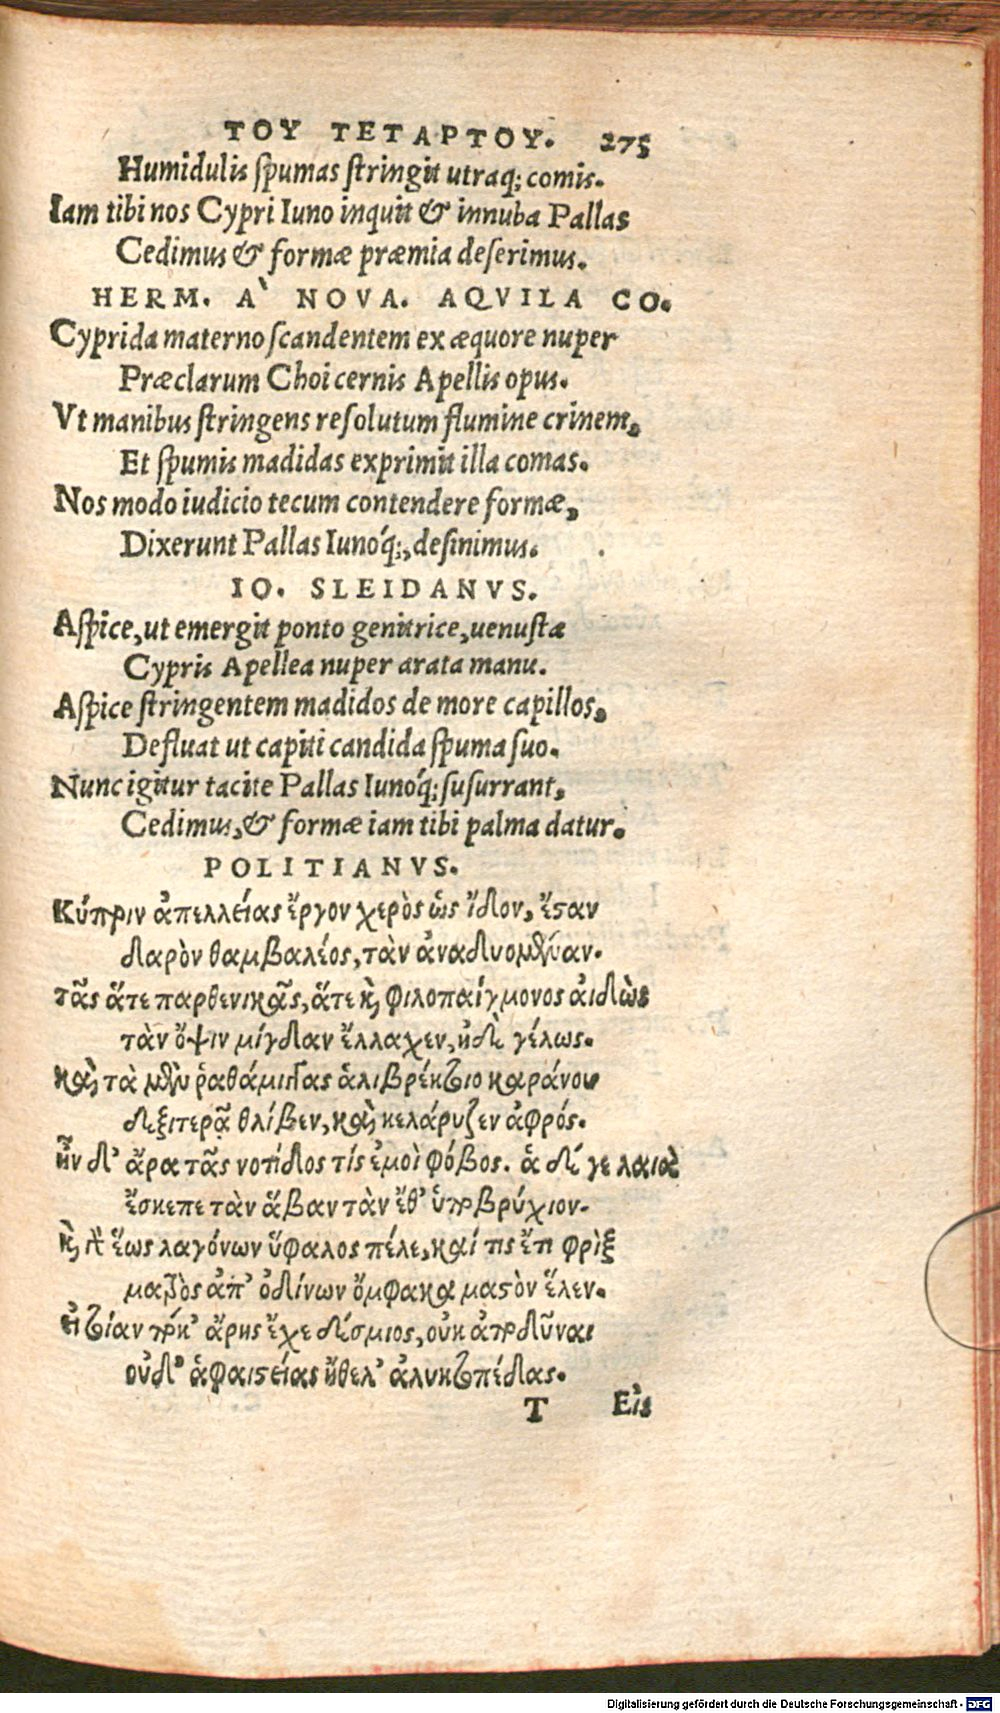 ΤΟΥ ΤΕΤΑΡΤΟΥ. 275
Humidulis ſpumas ſtringit utraq; comis.
Iam tibi nos Cypri Iuno inquit & innuba Pallas
Cedimus & formæ præmia deſerimus.
HERM. A` NOVA. AQVILA CO.
Cyprida materno ſcandentem ex æquore nuper
Præclarum Choi cernis Apellis opus.
Vt manibus ſtringens reſolutum flumine crinem,
Et ſpumis madidas exprimit illa comas.
Nos modo iudicio tecum contendere formæ,
Dixerunt Pallas Iunóq;, deſinimus.
IO. SLEIDANVS.
Aſpice, ut emergit ponto genitrice, uenuſta
Cypris Apellea nuper arata manu.
Aſpice ſtringentem madidos de more capillos,
Defluat ut capiti candida ſpuma ſuo.
Nunc igitur tacite Pallas Iunóq; ſuſurrant,
Cedimus, & formæ iam tibi palma datur.
POLITIANVS.
Κύπριν ἀπελλείας ἔργον χερὸς ὡς ἴδον, ἔσταν
δαρὸν θαμβαλέος, τὰν ἀναδυομένναν.
τᾶς ἅτε παρθενικᾶς, ἅτε καὶ φιλοπαίγμονος αἰδὼς
τὰν ὄψιν μίγδαν ἔλλαχεν, ἠδὲ γέλως.
καὶ τὰ μὲν ῥαθάμιγγας ἁλιβρέκτοιο καράνου
δεξιτερᾷ θλίβεν, καὶ κελάρυζεν ἀφρός.
ἦν δ' ἄρα τᾶς νοτίδος τίς ἐμοὶ φόβος. ἁ δέ γε λαιὰ
ἔσκεπε τὰν ἅβαν τὰν ἔθ' ὑποβρύχιον.
καὶ ἕως λαγόνων ὕφαλος πέλε, καί τις ἔτι φρὶξ
ματρὸς ἀπ' ὀδίνων ὄμφακα μαστὸν ἕλεν.
εἰ τοίαν ποκ' ἄρης ἔχε δέσμιος, οὐκ ἀποδῦναι
οὐδ' ἁφαιστείας ἤθελ' ἀλυκτοπέδας.
T Εἰς
Digitalisierung gefördert durch die Deutsche Forschungsgemeinschaft - DFG